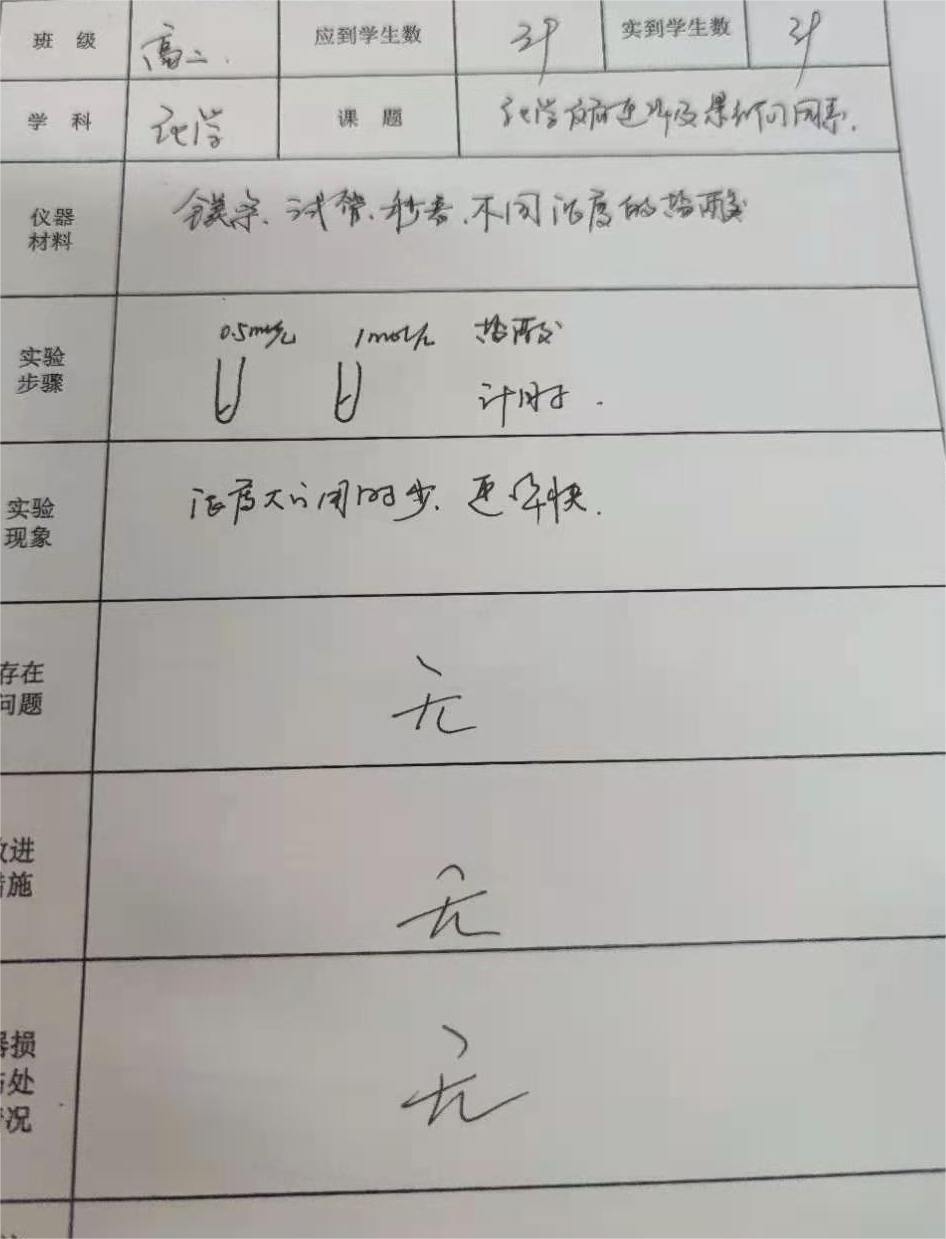 班 级 高二. 应到学生数 39 实到学生数 39
学 科 化学 课 题 化学反应速率及影响因素.
仪器
材料
镁条、试管、秒表、不同浓度的盐酸
实验
步骤
0.5mol/L 1mol/L 盐酸
计时.
实验
现象
浓度大的用时少、速率快.
存在
问题
无
改进
措施
无
器损
处
况
无